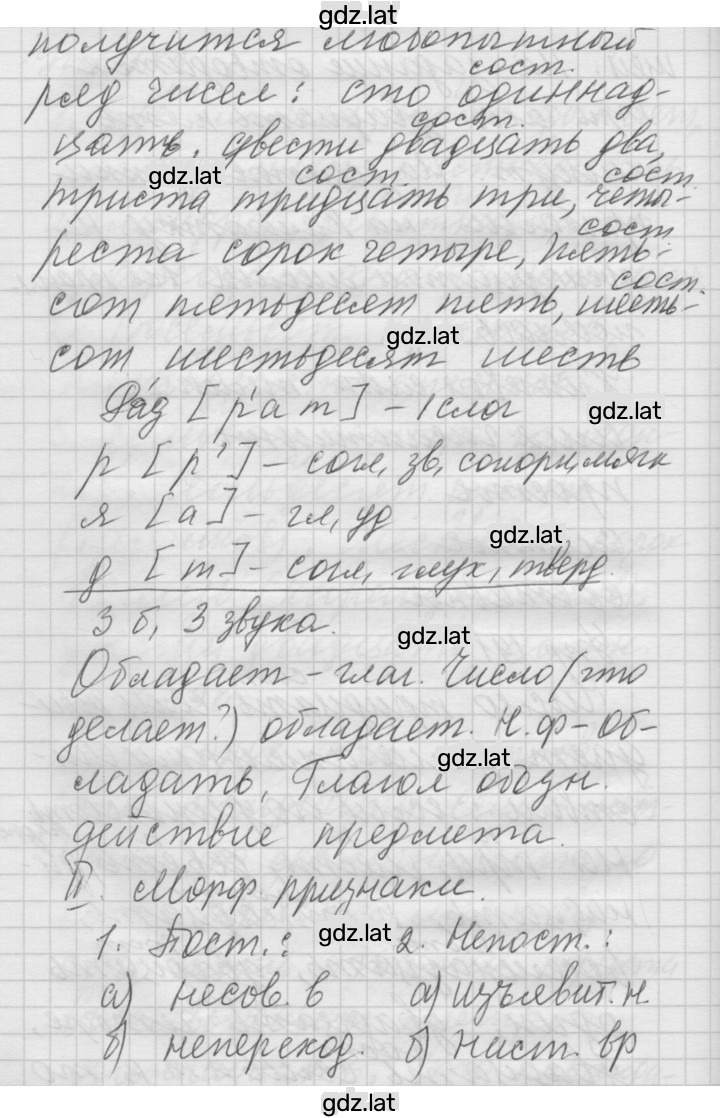 gdz.lat
получится любопытный
сост.
ряд чисел: сто одиннад-
сост.
цать, двести двадцать два,
gdz.lat сост. сост.
триста тридцать три, четы-
сост.
реста сорок четыре, пять-
сост.
сот пятьдесят пять, шесть-
gdz.lat
сот шестьдесят шесть
Ряд [р'ат] – 1 слог gdz.lat
р [р'] – согл, зв, сонорн, мягк
я [а] – гл, уд
gdz.lat
д [т] – согл, глух, тверд.
3 б, 3 звука.
gdz.lat
Обладает – глаг. Число (что
делает?) обладает. Н.ф – об-
gdz.lat
ладать, Глагол обозн.
действие предмета.
II. Морф. признаки.
1. Пост.: gdz.lat 2. Непост.:
а) несов. в а) изъявит. н
б) неперехoд. б) наст. вр
gdz.lat